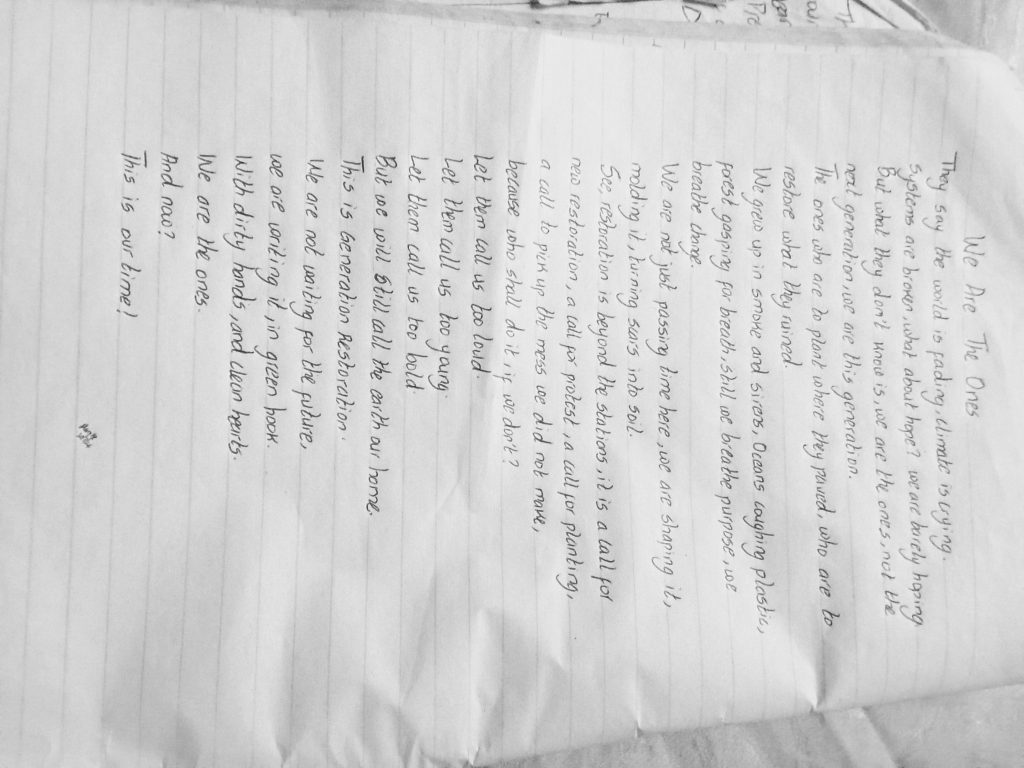 We Are The Ones
They say the world is fading, climate is crying.
Systems are broken, what about hope? we are barely hoping
But what they don't know is, we are the ones, not the
next generation, we are this generation.
The ones who are to plant where they paved, who are to
restore what they ruined.
We grew up in smoke and sirens, Oceans coughing plastic,
forest gasping for breath, still we breathe purpose, we
breathe change.
We are not just passing time here, we are shaping it,
molding it, turning scars into soil.
See, restoration is beyond the stations, it is a call for
new restoration, a call for protest, a call for planting,
a call to pick up the mess we did not make,
because who shall do it if we don't?
Let them call us too loud.
Let them call us too young.
Let them call us too bold.
But we will still call the earth our home.
This is Generation Restoration.
We are not waiting for the future,
we are writing it, in green book.
With dirty hands, and clean hearts.
We are the ones.
And now?
This is our time!